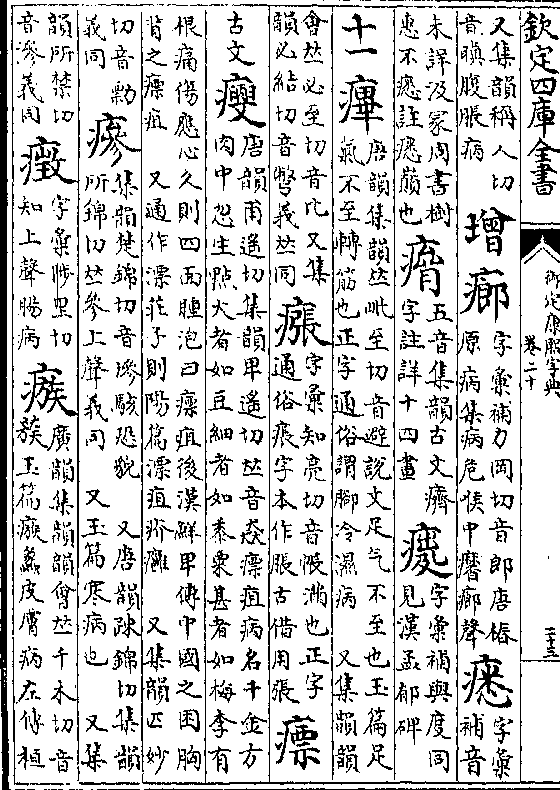 欽定四庫全書
御定康熙字典
卷二十
三十三
又集韻稱人切
音瞋腹脹病
增
㾿
字彙補力岡切音郎唐椿
原病集病危候中磨㾿聲
字彙
補音
惠不瘛註瘛巔也
未詳汲冢周書樹
字註詳十四畫
五音集韻古文癠
字彙補與度同
見漢孟郁碑
十一
痹
唐韻集韻𠀤毗至切音避說文足气不至也玉篇足
氣不至轉筋也正字通俗謂腳冷濕病 又集韻韻
會𠀤必至切音比又集
韻必結切音彆義𠀤同
瘬
字彙知亮切音帳滿也正字
通俗痕字本作脹古借用張
瘭
古文
唐韻甫遙切集韻卑遙切𠀤音猋瘭疽病名千金方
肉中忽生點大者如豆細者如黍粟甚者如梅李有
根痛傷應心久則四面腫泡曰瘭疽後漢鮮卑傳中國之困胸
背之瘭疽 又通作漂莊子則陽篇漂疽疥癰 又集韻匹妙
切音勡
義同
瘆
集韻楚錦切音墋駭恐貌 又唐韻疎錦切集韻
所錦切𠀤參上聲義同 又玉篇寒病也 又集
韻所禁切
音滲義同
字彙陟里切
知上聲腸病
瘯
廣韻集韻韻會𠀤千木切音
簇玉篇瘯蠡皮膚病左傳桓